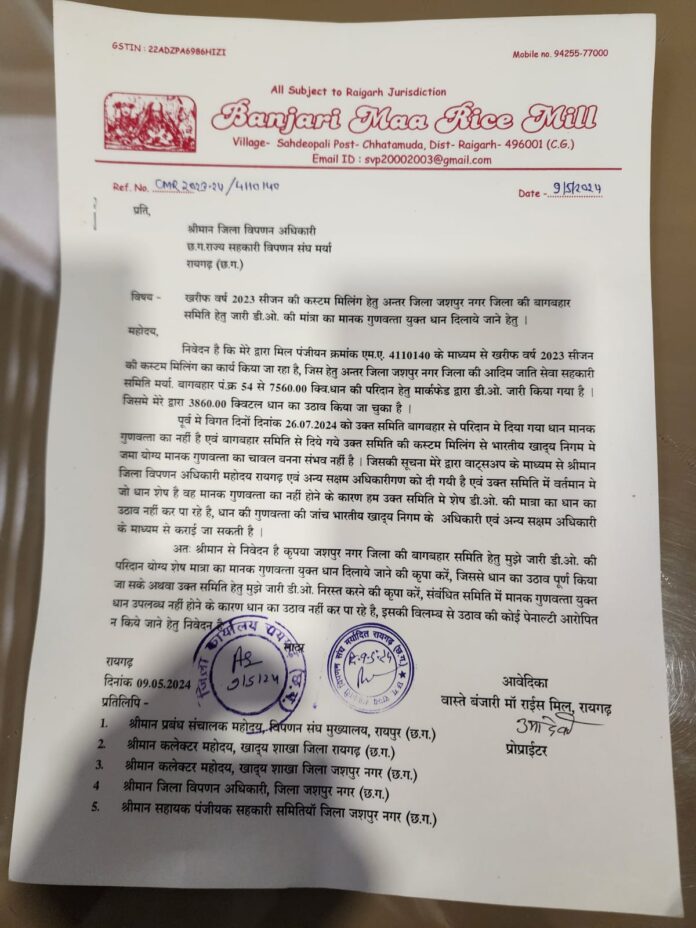 GSTIN : 22ADZPA6986HIZI
Mobile no. 94255-77000
All Subject to Raigarh Jurisdiction
Banjari Maa Rice Mill
Village- Sahdeopali Post- Chhatamuda, Dist- Raigarh- 496001 (C.G.)
Email ID : svp20002003@gmail.com
Ref. No. CMR 2023-24/4110140
Date - 9/5/2024
प्रति,
श्रीमान जिला विपणन अधिकारी
छ.ग.राज्य सहकारी विपणन संघ मर्या
रायगढ़ (छ.ग.)
विषय - खरीफ वर्ष 2023 सीजन की कस्टम मिलिंग हेतु अन्तर जिला जशपुर नगर जिला की बागबहार
समिति हेतु जारी डी.ओ. की मांत्रा का मानक गुणवत्ता युक्त धान दिलाये जाने हेतु ।
महोदय,
निवेदन है कि मेरे द्वारा मिल पंजीयन क्रमांक एम.ए. 4110140 के माध्यम से खरीफ वर्ष 2023 सीजन
की कस्टम मिलिंग का कार्य किया जा रहा है, जिस हेतु अन्तर जिला जशपुर नगर जिला की आदिम जाति सेवा सहकारी
समिति मर्या. बागबहार पं.क्र 54 से 7560.00 क्वि.धान की परिदान हेतु मार्कफेड द्वारा डी.ओ. जारी किया गया है ।
जिसमे मेरे द्वारा 3860.00 क्विटल धान का उठाव किया जा चुका है ।
पूर्व मे विगत दिनों दिनांक 26.07.2024 को उक्त समिति बागबहार से परिदान मे दिया गया धान मानक
गुणवत्ता का नहीं है एवं बागबहार समिति से दिये गये उक्त समिति की कस्टम मिलिंग से भारतीय खाद्य निगम मे
जमा योग्य मानक गुणवत्ता का चावल बनना संभव नहीं है । जिसकी सूचना मेरे द्वारा वाट्सअप के माध्यम से श्रीमान
जिला विपणन अधिकारी महोदय रायगढ़ एवं अन्य सक्षम अधिकारीगण को दी गयी है एवं उक्त समिति में वर्तमान मे
जो धान शेष है वह मानक गुणवत्ता का नहीं होने के कारण हम उक्त समिति मे शेष डी.ओ. की मात्रा का धान का
उठाव नहीं कर पा रहे है, धान की गुणवत्ता की जांच भारतीय खाद्य निगम के अधिकारी एवं अन्य सक्षम अधिकारी
के माध्यम से कराई जा सकती है ।
अतः श्रीमान से निवेदन है कृपया जशपुर नगर जिला की बागबहार समिति हेतु मुझे जारी डी.ओ. की
परिदान योग्य शेष मात्रा का मानक गुणवत्ता युक्त धान दिलाये जाने की कृपा करें, जिससे धान का उठाव पूर्ण किया
जा सके अथवा उक्त समिति हेतु मुझे जारी डी.ओ. निरस्त करने की कृपा करें, संबंधित समिति में मानक गुणवत्ता युक्त
धान उपलब्ध नहीं होने के कारण धान का उठाव नहीं कर पा रहे है, इसकी विलम्ब से उठाव की कोई पेनाल्टी आरोपित
न किये जाने हेतु निवेदन है
सादर
जिला कार्यालय रायगढ़ (छ.ग.)
9/5/24
विपणन संघ मर्यादित रायगढ़ (छ.ग.)
R-9-5-24
रायगढ़
दिनांक 09.05.2024
आवेदिका
वास्ते बंजारी माँ राईस मिल, रायगढ़
प्रोप्राईटर
प्रतिलिपि -
1. श्रीमान प्रबंध संचालक महोदय, विपणन संघ मुख्यालय, रायपुर (छ.ग.)
2. श्रीमान कलेक्टर महोदय, खाद्य शाखा जिला रायगढ़ (छ.ग.)
3. श्रीमान कलेक्टर महोदय, खाद्य शाखा जिला जशपुर नगर (छ.ग.)
4 श्रीमान जिला विपणन अधिकारी, जिला जशपुर नगर (छ.ग.)
5. श्रीमान सहायक पंजीयक सहकारी समितियाँ जिला जशपुर नगर (छ.ग.)